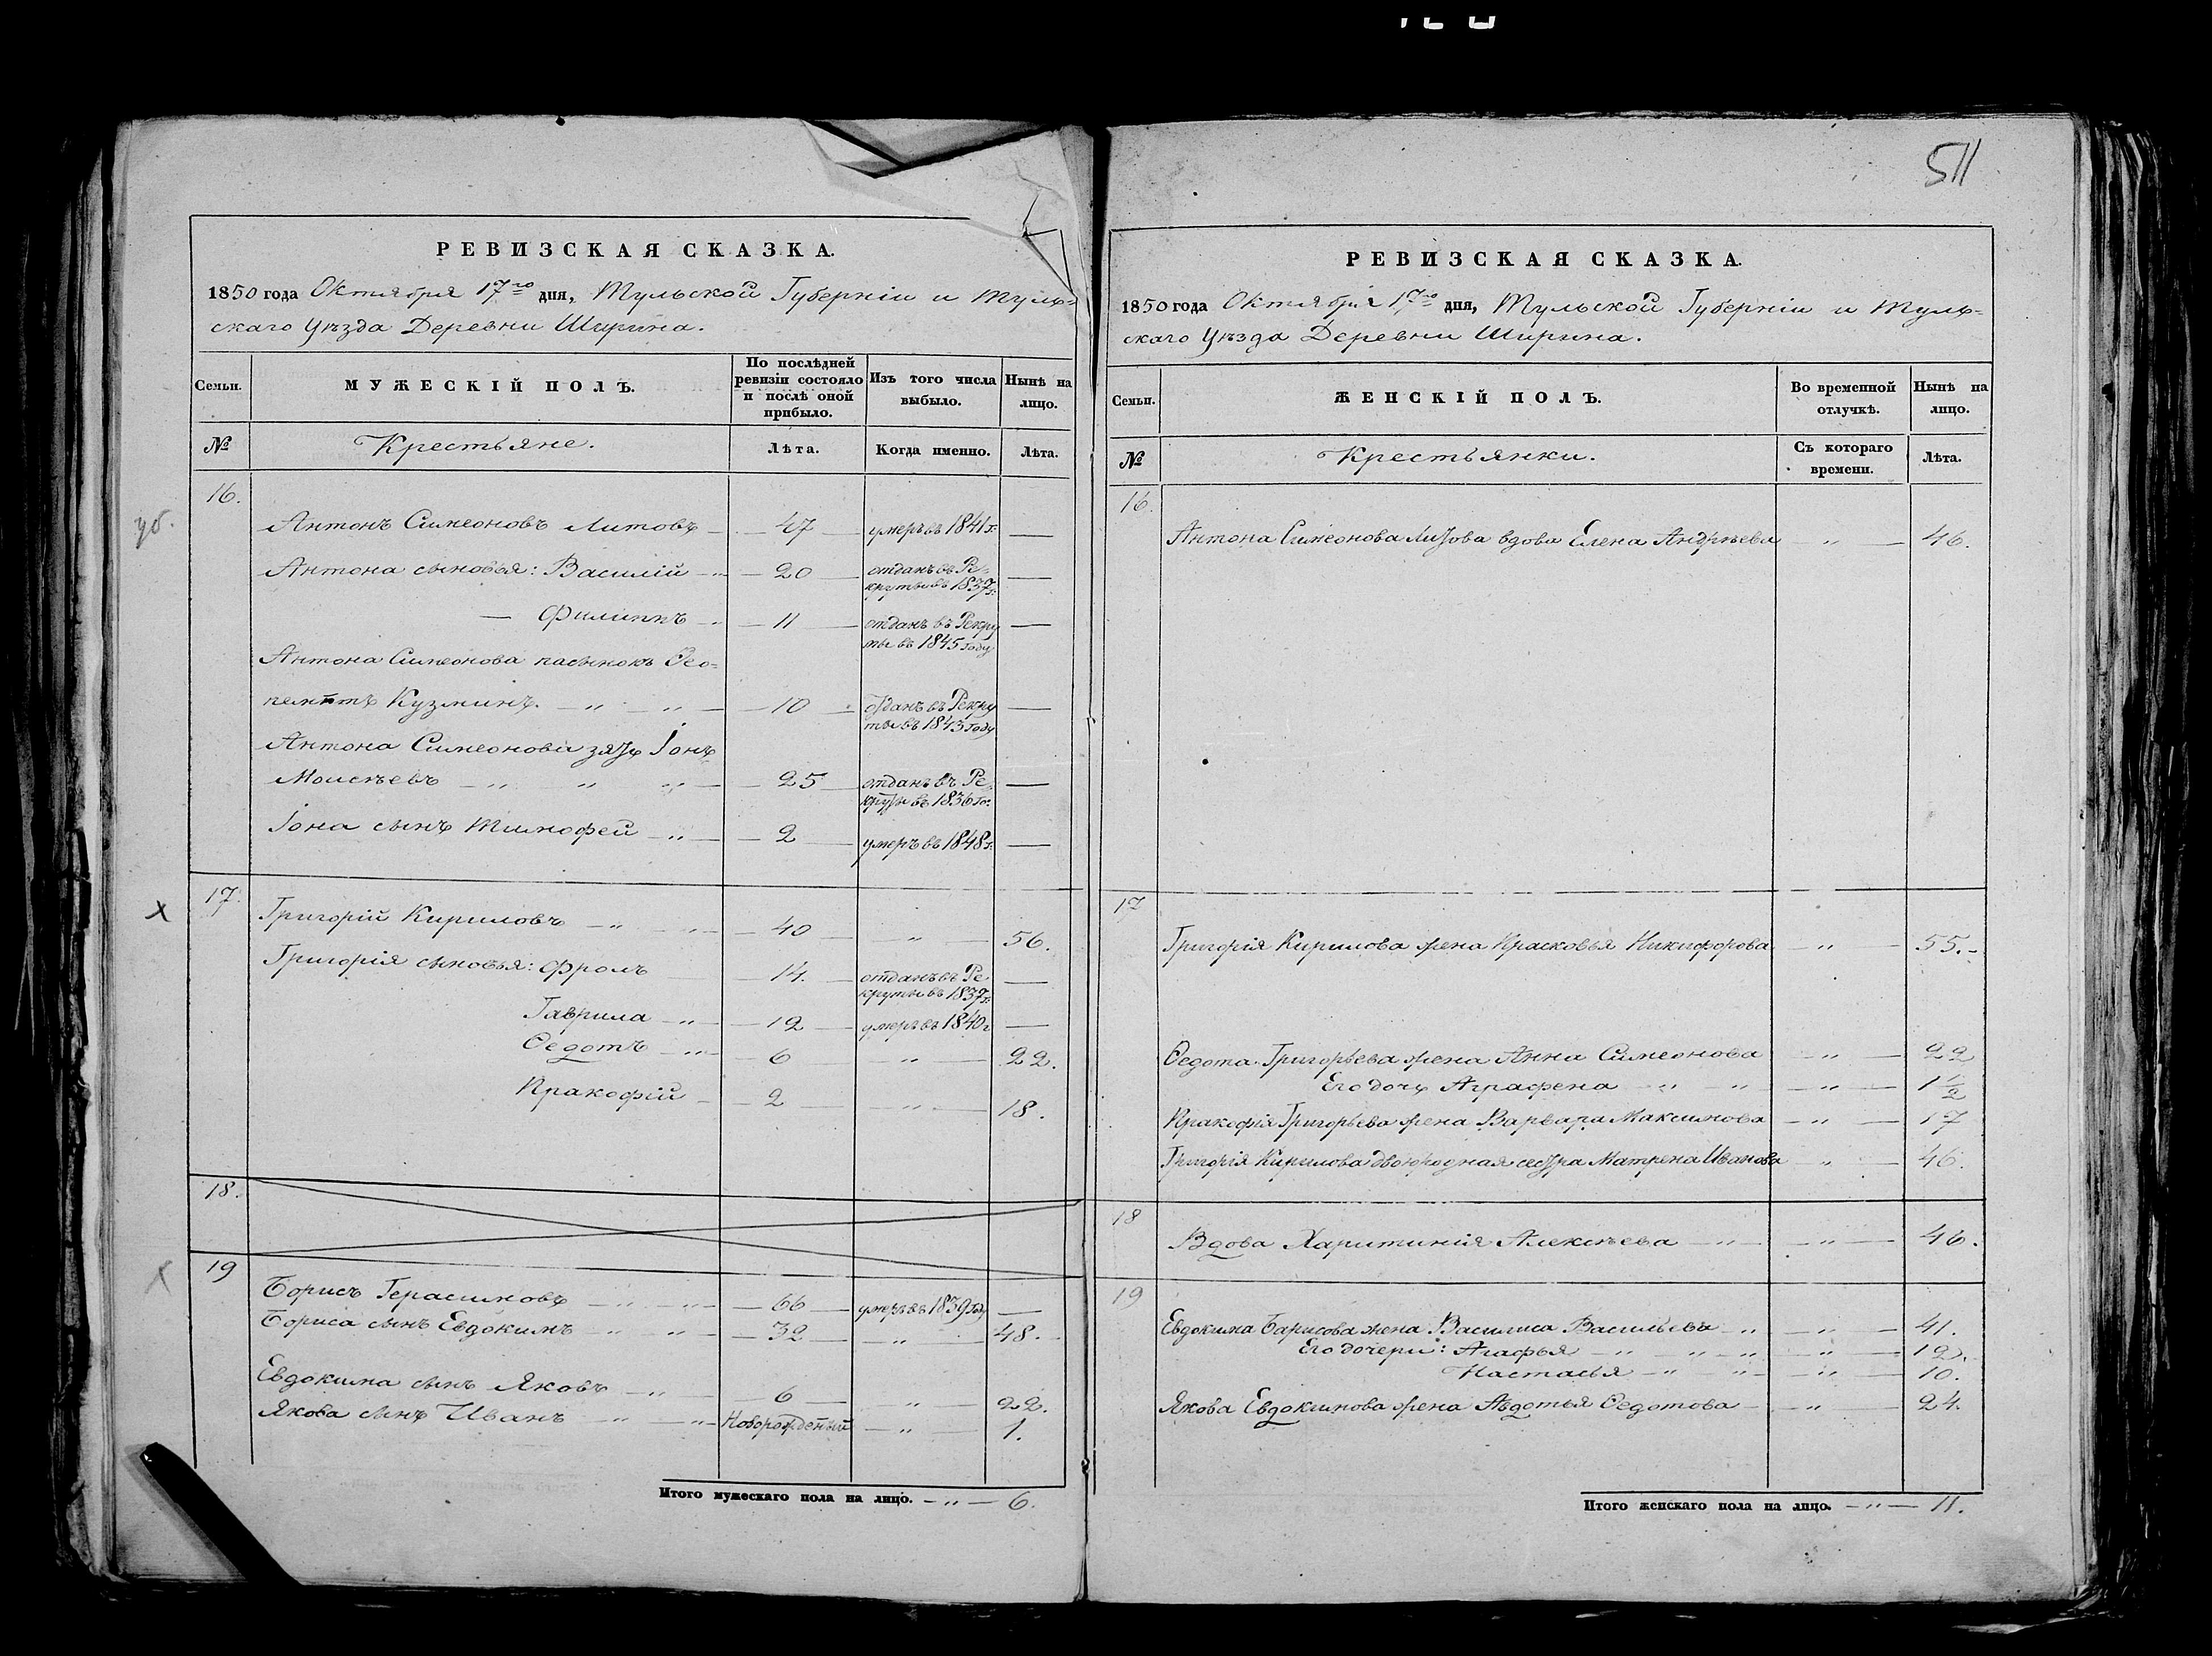 511
РЕВИЗСКАЯ СКАЗКА.
1850 года Октября 17го дня, Тульской Губерніи и Туль-
скаго Уѣзда Деревни Ширина.
Семьи.
МУЖЕСКІЙ ПОЛЪ.
По послѣдней ревизіи состояло и послѣ оной прибыло.
Изъ того числа выбыло.
Нынѣ на лицо.
№
Крестьяне.
Лѣта.
Когда именно.
Лѣта.
16.
уб.
Антонъ Симеоновъ Литовъ — 47 — умеръ въ 1841 г: —
Антона сыновья: Василій — 20 — отданъ въ Ре-
круты въ 1837 г: —
— Филиппъ — 11 — отданъ въ Рекру
ты въ 1845 году —
Антона Симеонова пасынокъ Ѳео-
пемптъ Кузминъ. — " — " — 10 — отданъ въ Рекру
ты въ 1843 году —
Антона Симеонова зять Іонъ
Моисѣевъ — " " " — 25 — отданъ въ Ре-
круты въ 1836 го: —
Іона сынъ Тимофей — " — 2 — умеръ въ 1848 г: —
17.
х
Григорій Кириловъ — " — 40 — " — 56.
Григорія сыновья: Фролъ — 14. — отданъ въ Ре-
круты въ 1837 г: —
Гаврила — " — 12 — умеръ въ 1840 г —
Ѳедотъ — " — 6 — " — 22.
Пракофій — 2 — " — 18.
18.
19
х
Борисъ Герасимовъ — " — " — 66 — умеръ въ 1839 году —
Бориса сынъ Евдокимъ — " — " — 32 — " — 48.
Евдокима сынъ Яковъ — " — 6 — " — 22.
Якова сынъ Иванъ — " — " — Новорожденный — " — 1.
Итого мужескаго пола на лицо. — " — 6.
РЕВИЗСКАЯ СКАЗКА.
1850 года Октября 17го дня, Тульской Губерніи и Туль-
скаго Уѣзда Деревни Ширина.
Семьи.
ЖЕНСКІЙ ПОЛЪ.
Во временной отлучкѣ.
Нынѣ на лицо.
№
Крестьянки.
Съ котораго времени.
Лѣта.
16.
Антона Симеонова Литова вдова Елена Андрѣева — " — 46.
17
Григорія Кирилова жена Прасковья Никифорова — " — 55.
Ѳедота Григорьева жена Анна Симеонова — " — 22
Его дочь Аграфена " " — " — 1 1/2
Пракофія Григорьева жена Варвара Максимова — " — 17
Григорія Кирилова двоюродная сестра Матрена Иванова " — 46.
18
Вдова Харитинія Алексѣева — " — " — 46.
19
Евдокима Барисова жена Василиса Васильева — " — " — 41.
Его дочери: Агафья — " — " — " — " — 12.
Настасья — " — " — " — 10.
Якова Евдокимова жена Авдотья Ѳедотова — " — 24.
Итого женскаго пола на лицо. — " — 11.